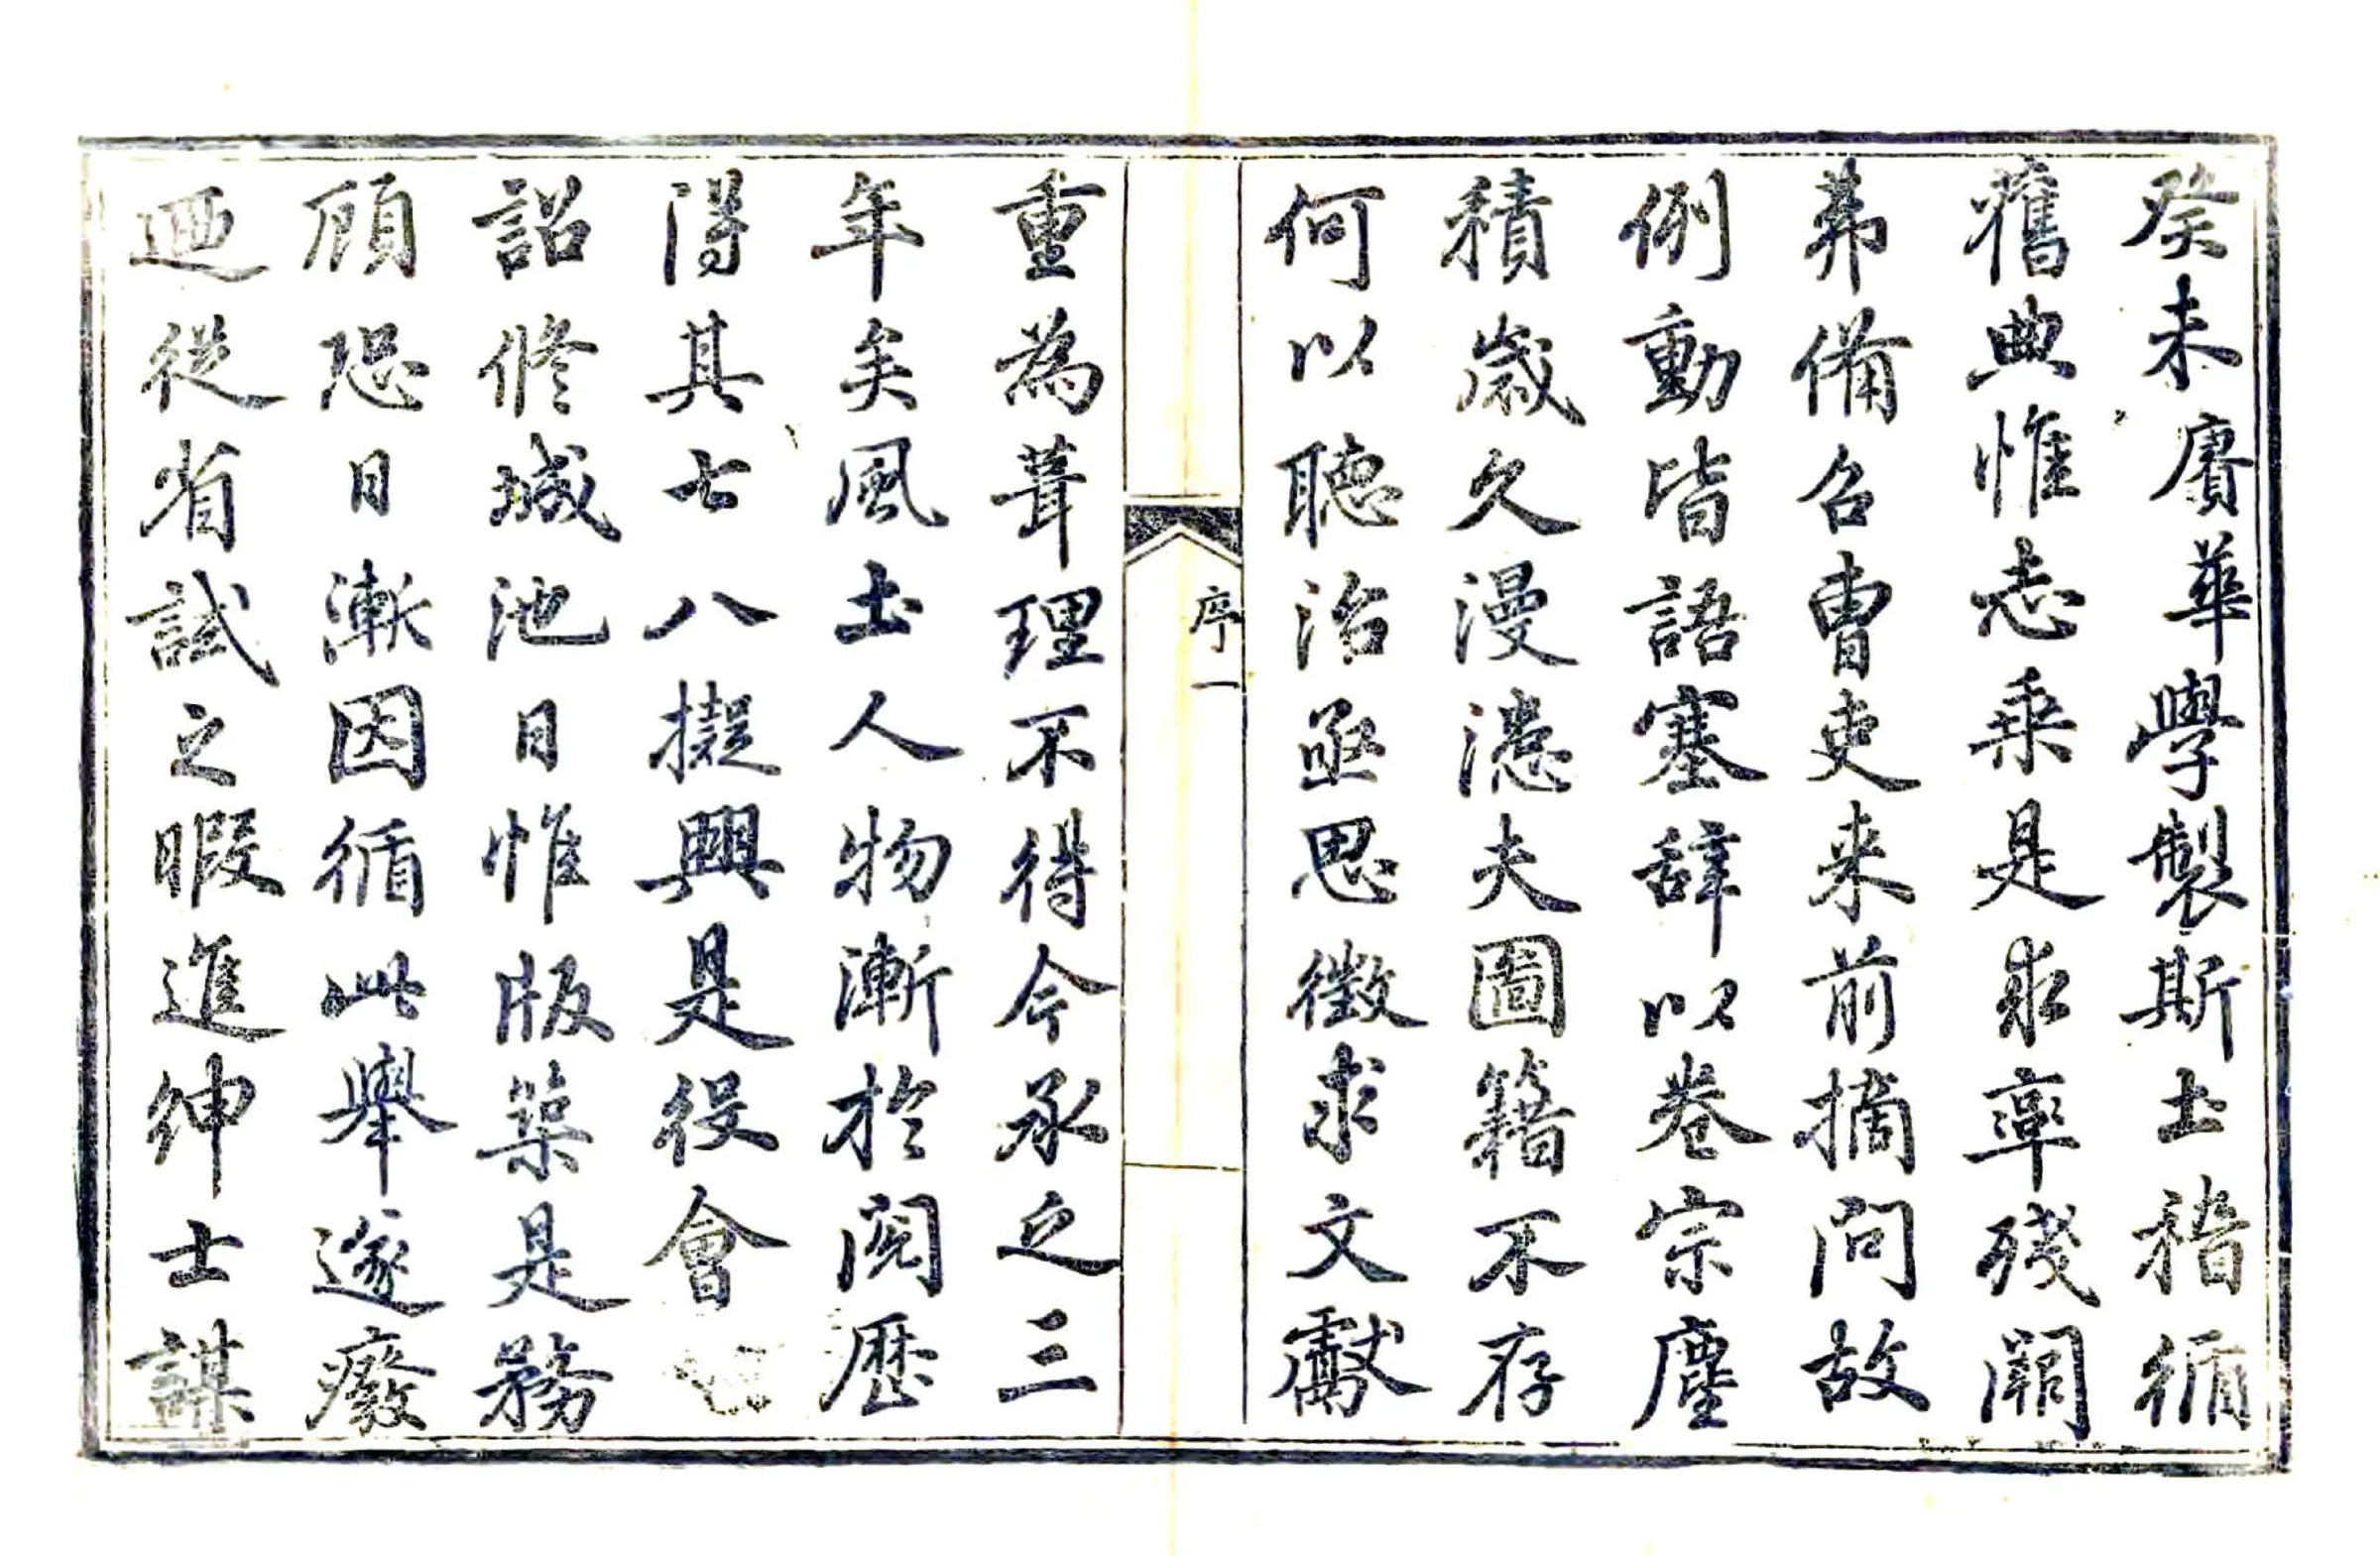 癸未賡華學製斯土稽循
舊典惟志乘是求率殘闕
弗備召曹吏来前摘问故
例動皆語塞辞以卷宗塵
積歲久漫漶夫圖籍不存
何以聽治亟思徵求文獻
序一
重為葺理不得今承乏三
年矣風土人物漸於閱歷
得其七八擬興是役會
詔修城池日惟版築是務
顧恐日漸因循此舉遂廢
迺從省試之暇進紳士謀